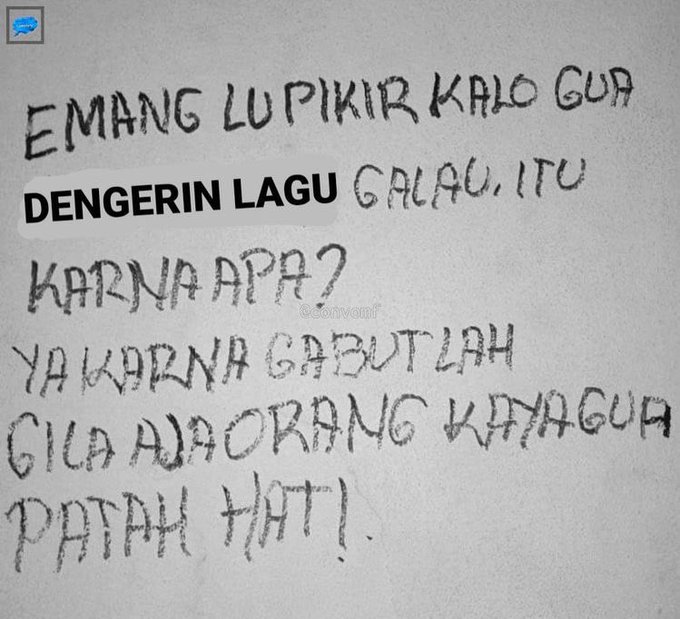 EMANG LU PIKIR KALO GUA
DENGERIN LAGU GALAU, ITU
KARNA APA?
@convomf
YA KARNA GABUT LAH
GILA AJA ORANG KAYA GUA
PATAH HATI.